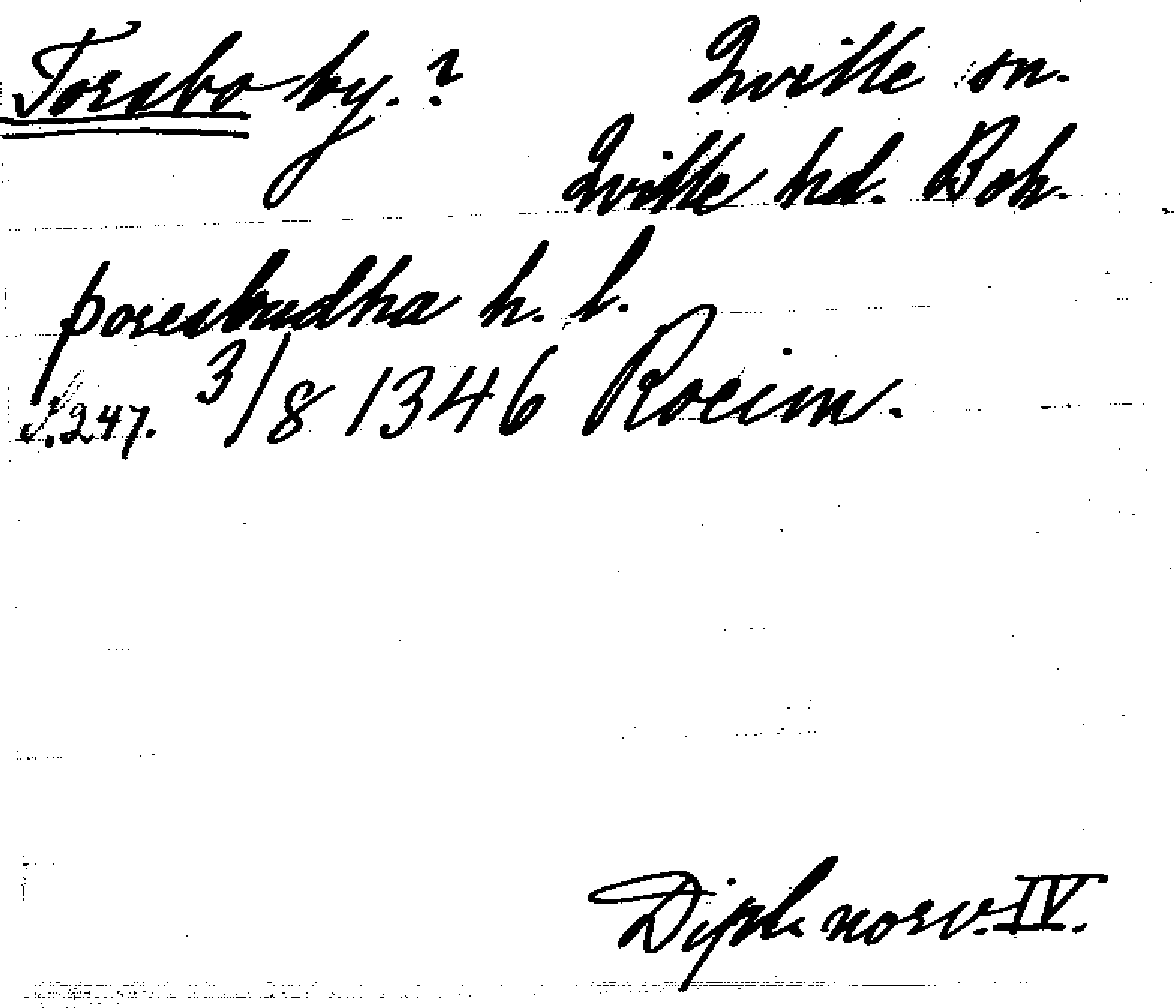 Torsbo by. ? Qville sn.
Qville hd. Boh.
þoresbudha h. l.
S. 247. 3/8 1346 Roeim.
Dipl. norv. IV.